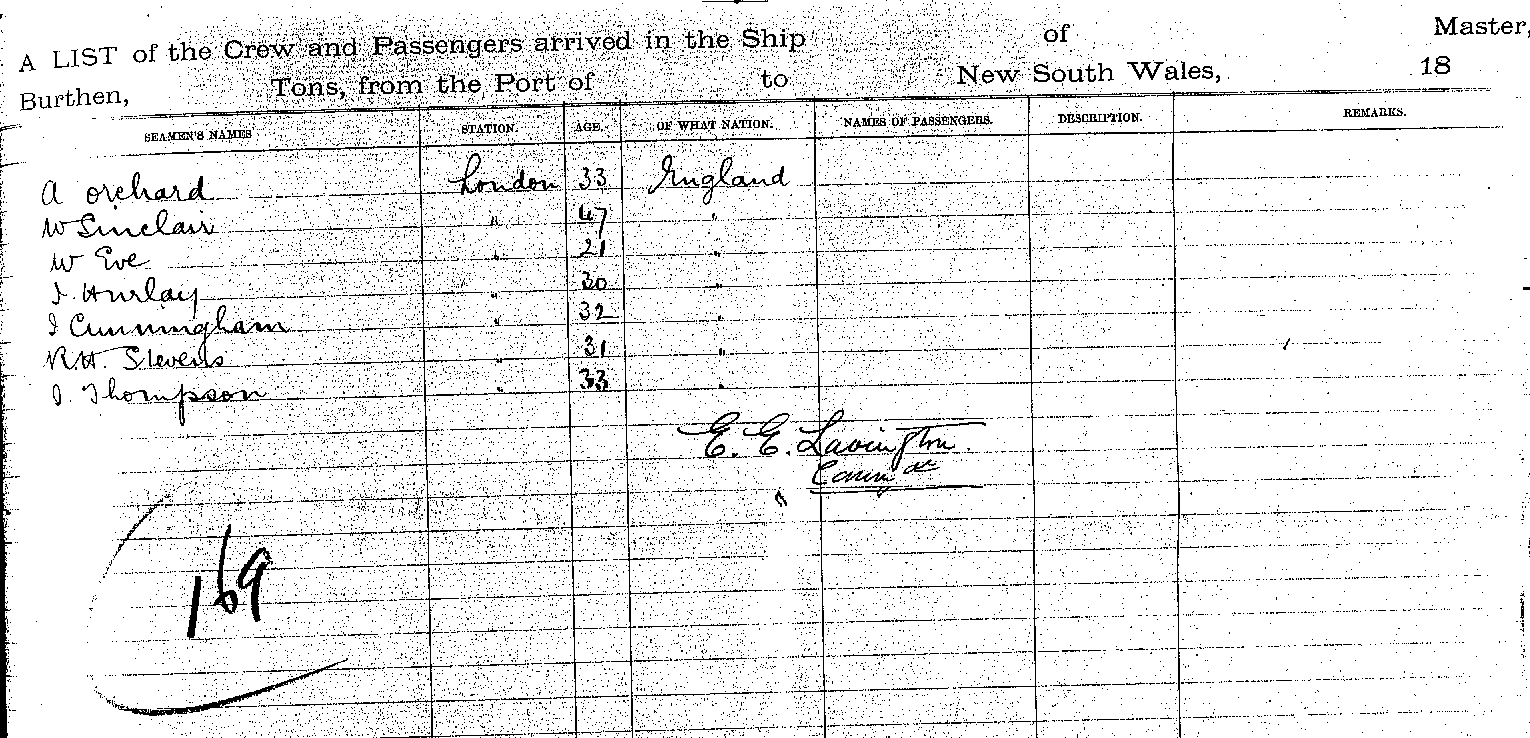 A LIST of the Crew and Passengers arrived in the Ship of Master,
Burthen, Tons, from the Port of to New South Wales, 18
SEAMEN'S NAMES STATION. AGE. OF WHAT NATION. NAMES OF PASSENGERS. DESCRIPTION. REMARKS.
A Orchard London 33 England
W Sinclair " 47 "
W Eve " 21 "
J. Hurlay " 30 "
J Cunningham " 32 "
R.H. Stevens " 31 "
J. Thompson " 33 "
E. E. Lavington
169